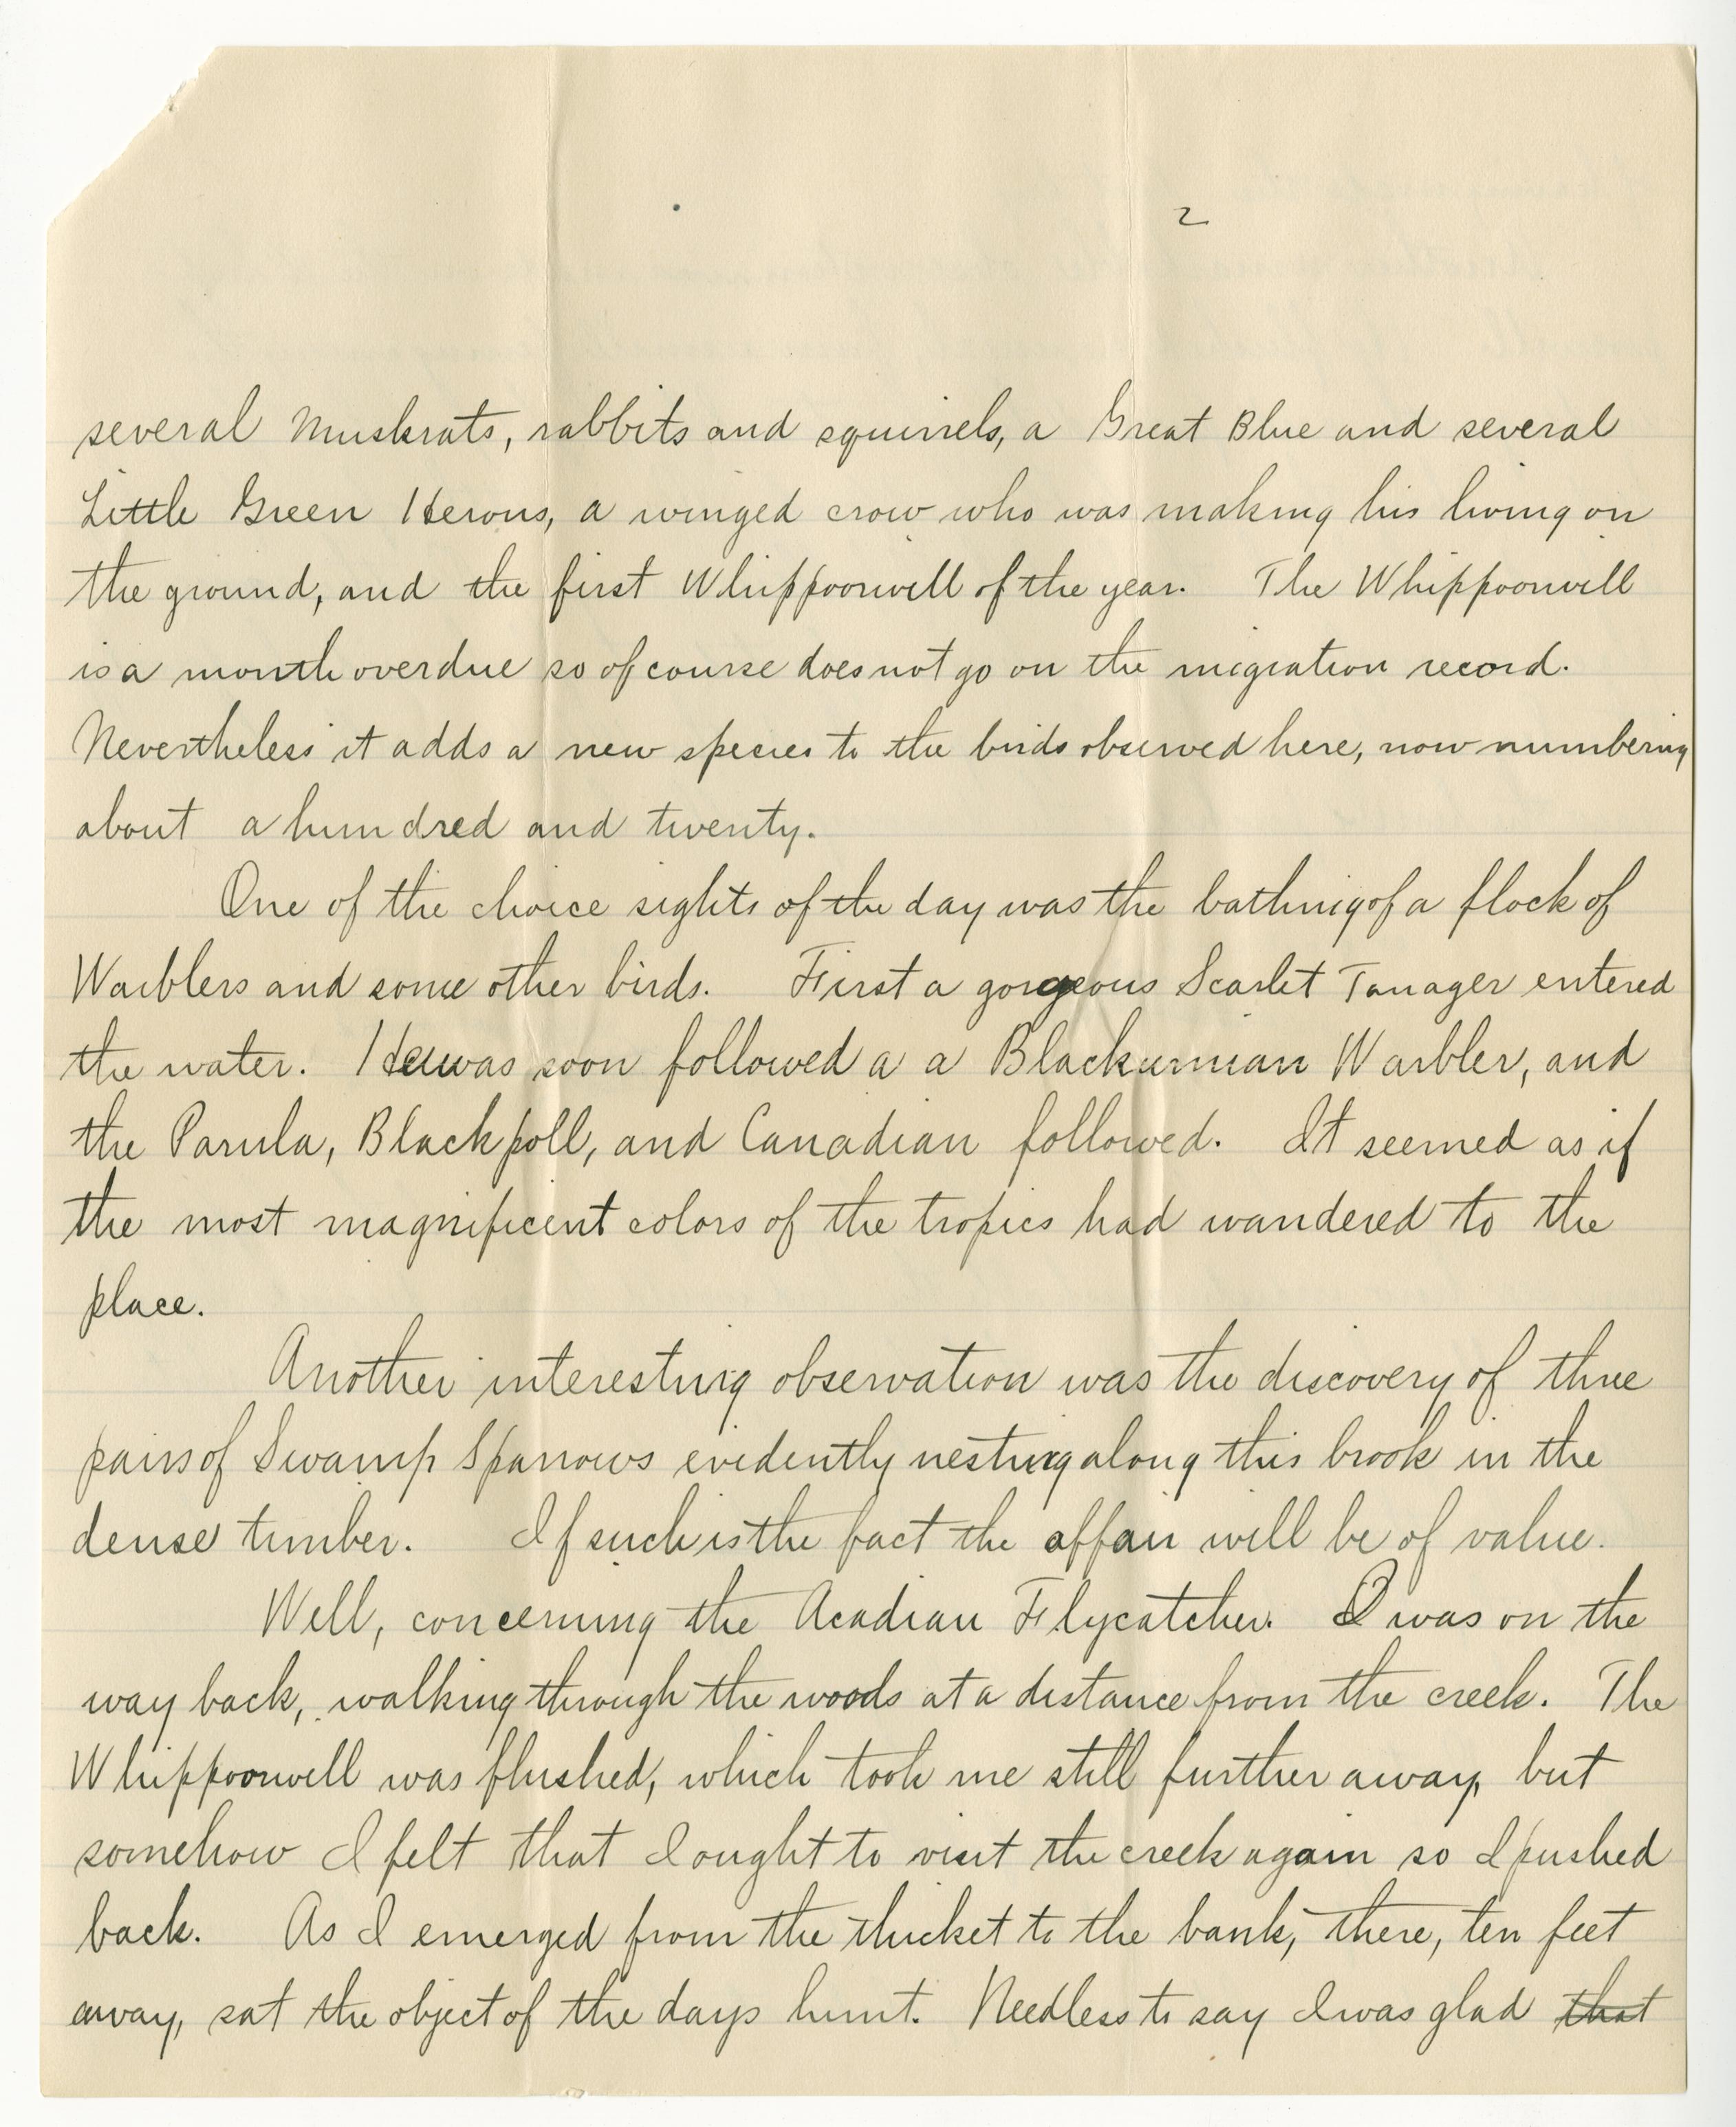 2
several Muskrats, rabbits and squirrels, a Great Blue and several
Little Green Herons, a winged crow who was making his living on
the ground, and the first Whippoorwill of the year. The Whippoorwill
is a month overdue so of course does not go on the migration record.
Nevertheless it adds a new species to the birds observed here, now numbering
about a hundred and twenty.
One of the choice sights of the day was the bathing of a flock of
Warblers and some other birds. First a gorgeous Scarlet Tanager entered
the water. He was soon followed a a Blackurnian Warbler, and
the Parula, Blackpoll, and Canadian followed. It seemed as if
the most magnificent colors of the tropics had wandered to the
place.
Another interesting observation was the discovery of three
pairs of Swamp Sparrows evidently nesting along this brook in the
dense timber. If such is the fact the affair will be of value.
Well, concerning the Acadian Flycatcher. I was on the
way back, walking through the woods at a distance from the creek. The
Whippoorwill was flushed, which took me still further away, but
somehow I felt that I ought to visit the creek again so I pushed
back. As I emerged from the thicket to the bank, there, ten feet
away, sat the object of the days hunt. Needless to say I was glad that